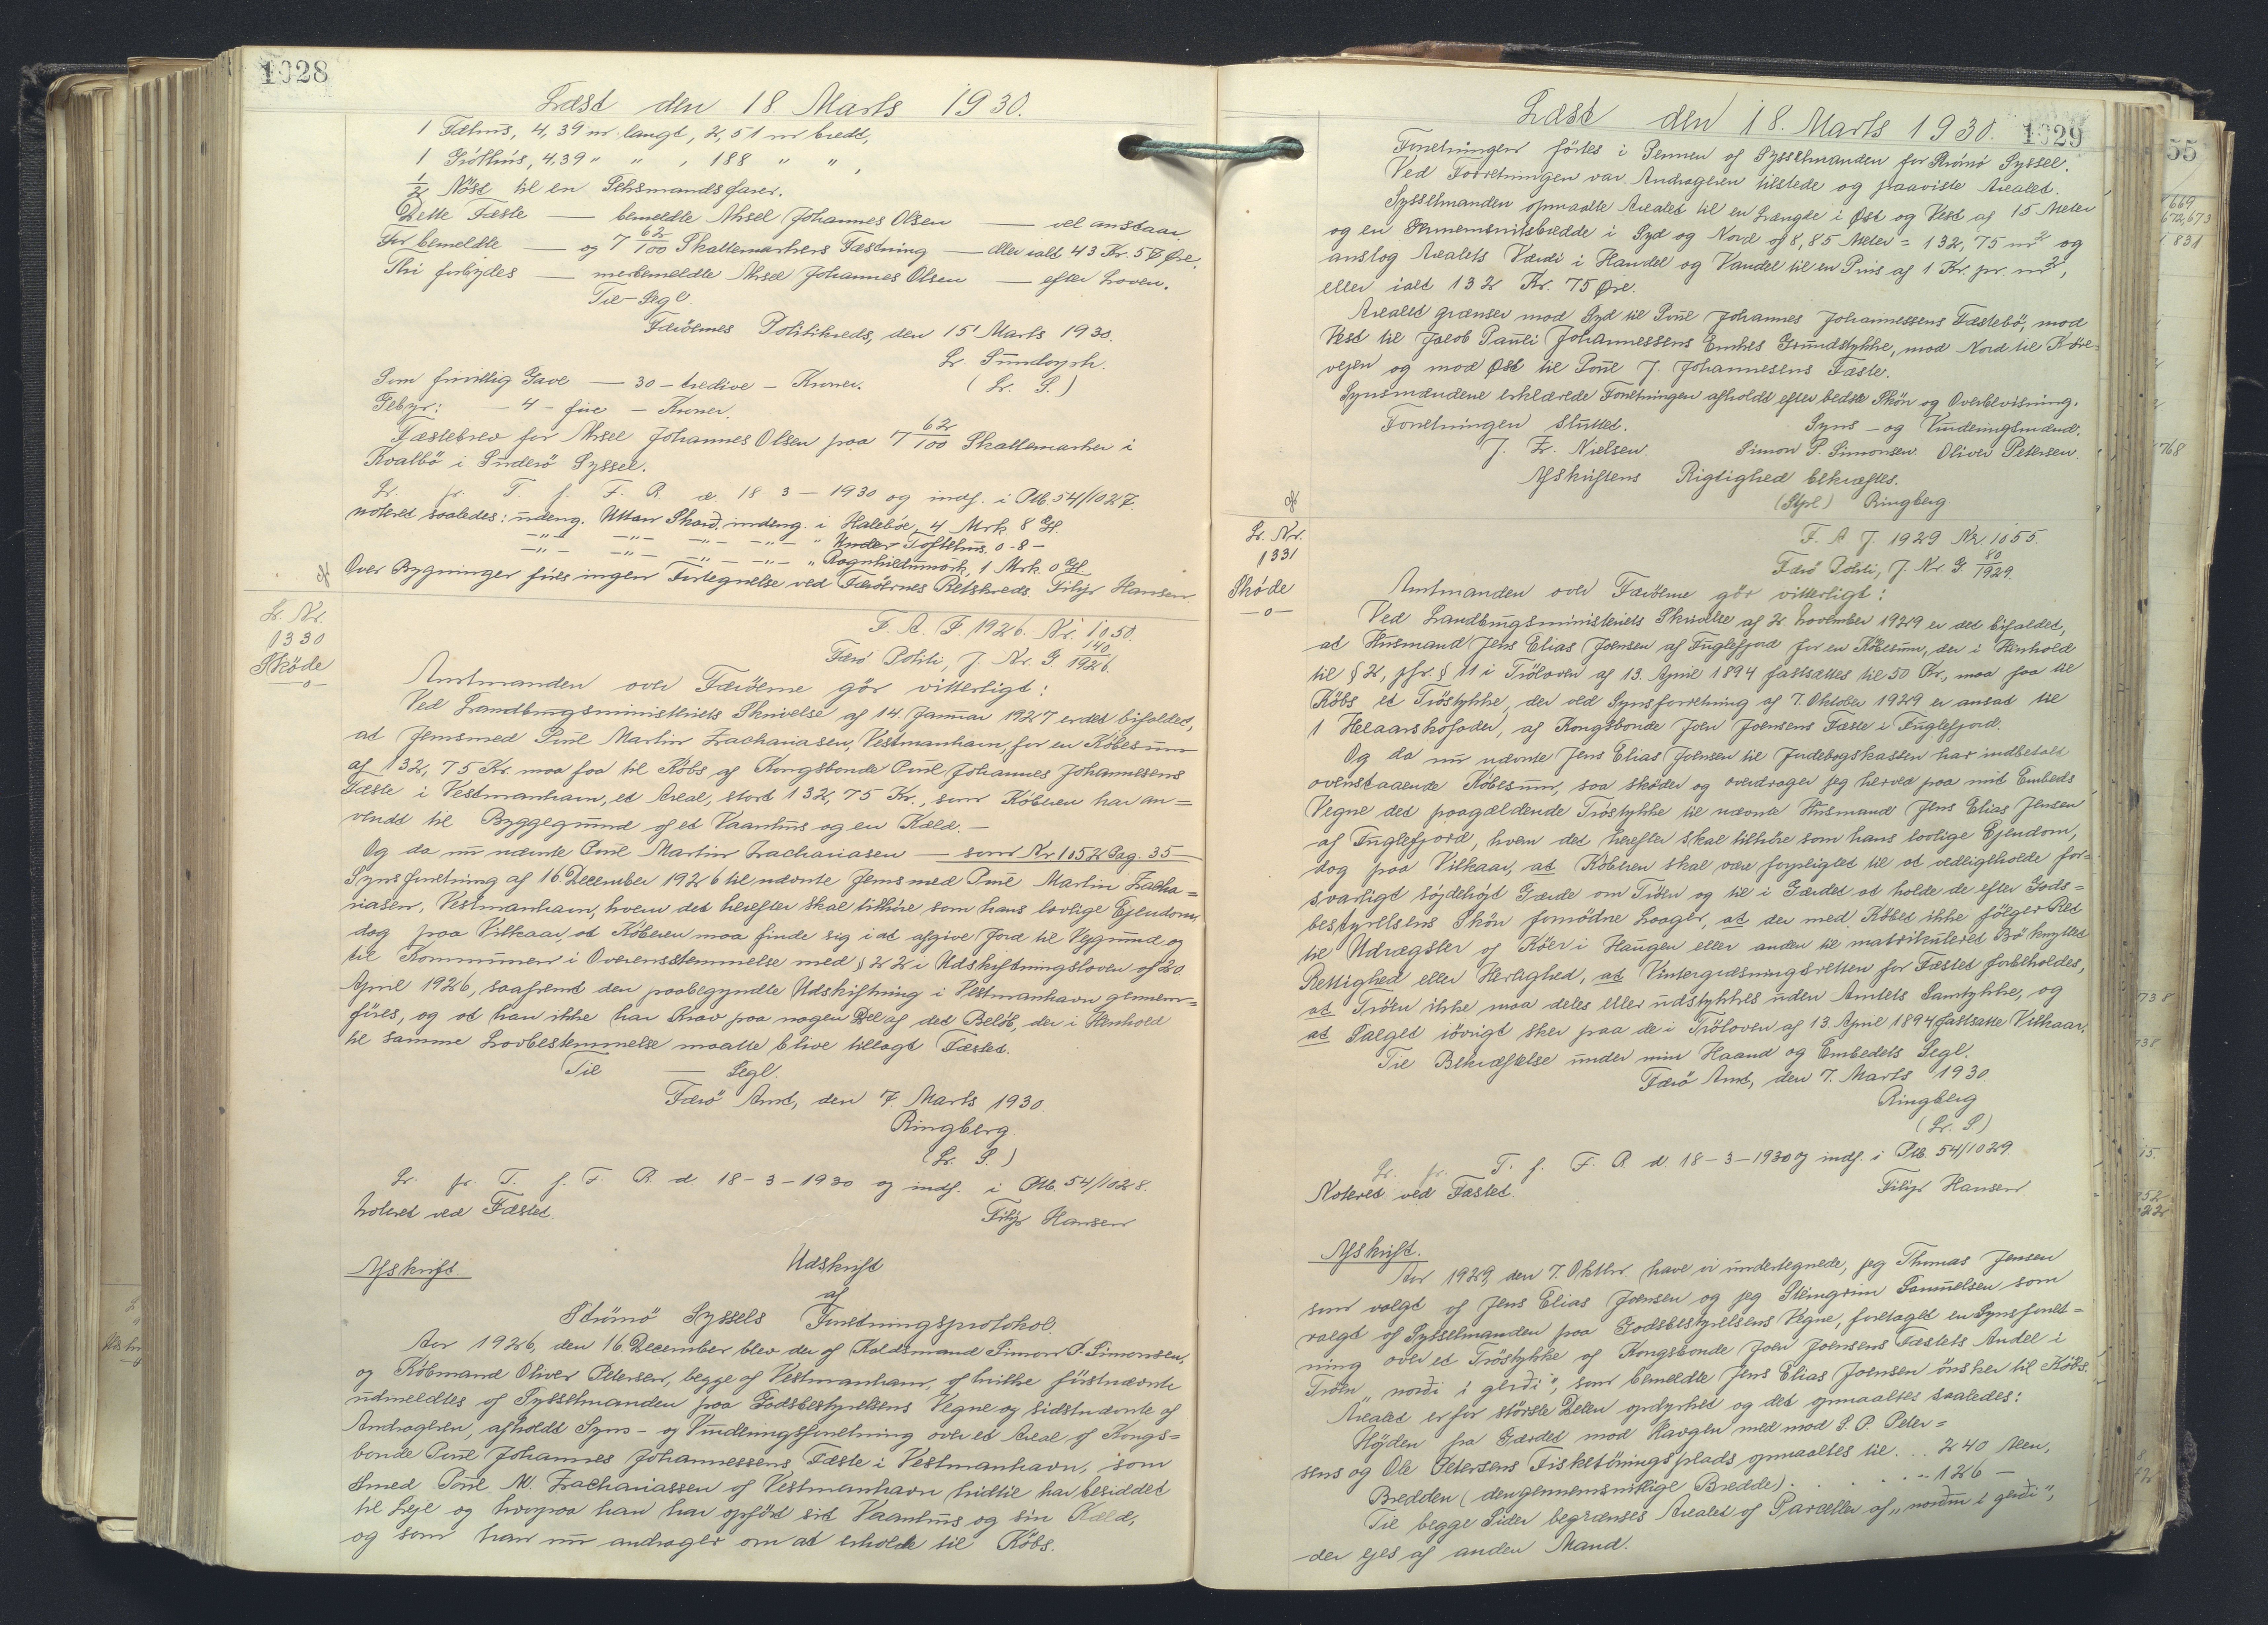 1028
Læst den 18. Marts 1930.
1 Fæhus, 4,39 m langt, 2,51 m bredt,
1 Gróthús, 4,39 " " , 188 " " ,
1/2 Nöst til en Seksmandsfarer.
Dette Fæste — bemeldte Aksel Johannes Olsen — vel anstaar
For bemeldte — og 7 62/100 Skattemarkers Fæstning — eller ialt 43 Kr. 57 Øre.
Thi forbydes — merbemeldte Aksel Johannes Olsen — efter Loven.
Til — Segl.
Færöernes Politikreds, den 15' Marts 1930.
L. Sundorph.
Som frivillig Gave — 30 – tredive – Kroner. (L. S.)
Gebyr: — 4 – fire – Kroner.
Fæstebrev for Aksel Johannes Olsen paa 7 62/100 Skattemarker i
Kvalbö i Suderö Syssel.
L. fr. T. f. F. R. d. 18-3-1930 og indf. i Ptb. 54/1027
noteret saaledes: udeng. Uttan Skard. indeng. i Halebøe, 4 Mrk. 8 Gl.
–"– –"– –"– –"– " Under Toftehús. 0 - 8 –
–"– –"– –"– –"– " Rognhildmörk, 1 Mrk. 0 Gl
Over Bygninger føres ingen Fortegnelse ved Færöernes Retskreds. Filip Hansen
L. Nr.
1330
Sköde
—o—
F. A. J. 1926. Nr. 1050.
Færö Politi, J. Nr. G. 140/1926.
Amtmanden over Færöerne gör vitterligt:
Ved Landbrugsministeriets Skrivelse af 14. Januar 1927 er det bifaldet,
at Jernsmed Poul Martin Zachariasen, Vestmanhavn, for en Købesum
af 132,75 Kr. maa faa til Købs af Kongsbonde Poul Johannes Johannesens
Fæste i Vestmanhavn, et Areal, stort 132,75 Kr., som Köberen har an=
vendt til Byggegrund af et Vaanhus og en Kæld. —
Og da nu nævnte Poul Martin Zachariasen — som Nr 1052 Pag. 35
Synsforretning af 16 December 1926 til nævnte Jernsmed Poul Martin Zacha=
riasen, Vestmanhavn, hvem det herefter skal tilhöre som hans lovlige Ejendom,
dog paa Vilkaar, at Köberen maa finde sig i at afgive Jord til Vejgrund og
til Kommunen i Overensstemmelse med § 22 i Udskiftningsloven af 20
April 1926, saafremt den paabegyndte Udskiftning i Vestmanhavn gennem=
føres, og at han ikke har Krav paa nogen Del af det Beløb, der i Henhold
til samme Lovbestemmelse maatte blive tillagt Fæstet.
Til — Segl.
Færö Amt, den 7. Marts 1930.
Ringberg.
(L. S.)
L. fr. T. f. F. R. d. 18-3-1930 og indf. i Ptb. 54/1028.
Noteret ved Fæstet. Filip Hansen
Afskrift. Udskrift
af
Strömö Syssels Forretningsprotokol.
Aar 1926, den 16 December blev der af Koldsmand Simon P. Simonsen,
og Købmand Oliver Petersen, begge af Vestmanhavn, af hvilke förstnævnte
udmeldtes af Sysselmanden paa Godsbestyrelsens Vegne og sidstnævnte af
Andrageren, afholdt Syns- og Vurderingsforretning over et Areal af Kongs=
bonde Poul Johannes Johannessens Fæste i Vestmanhavn, som
Smed Poul M. Zachariassen af Vestmanhavn hidtil har besiddet
til Leje og hvorpaa han har opført sit Vaanhus og sin Kæld,
og som han nu andrager om at erholde til Købs.
Læst den 18. Marts 1930. 1029
Forretningen førtes i Pennen af Sysselmanden for Strømø Syssel.
Ved Forretningen var Andrageren tilstede og paaviste Arealet.
Sysselmanden opmaalte Arealet til en Længde i Øst og Vest af 15 Meter
og en Gennemsnitsbredde i Syd og Nord af 8,85 Meter = 132,75 m² og
anslog Arealets Værdi i Handel og Vandel til en Pris af 1 Kr. pr. m²,
eller ialt 132 Kr. 75 Øre.
Arealet grænser mod Syd til Poul Johannes Johannessens Fæstebö, mod
Vest til Jacob Pauli Johannessens Enkes Grundstykke, mod Nord til Köre=
vejen og mod Øst til Poul J. Johannesens Fæste.
Synsmændene erklærede Forretningen afholdt efter bedste Skön og Overbevisning.
Forretningen sluttet. Syns- og Vurderingsmænd.
J. Z. Nielsen. Simon P. Simonsen. Oliver Petersen.
Afskriftens Rigtighed bekræftes.
(Stpl) Ringberg
L. Nr.
1331
Sköde
—o—
F. A. J. 1929 Nr. 1055.
Færö Politi, J. Nr. G. 80/1929.
Amtmanden over Færöerne gör vitterligt:
Ved Landbrugsministeriets Skrivelse af 2. November 1929 er det bifaldet,
at Husmand Jens Elias Joensen af Fuglefjord for en Købesum, der i Henhold
til § 2, jfr. § 11 i Tröloven af 13. April 1894 fastsættes til 50 Kr., maa faa til
Köbs et Tröstykke, der ved Synsforretning af 7. Oktober 1929 er ansat til
1 Helaarskofoder, af Kongsbonde Joen Joensens Fæste i Fuglefjord.
Og da nu nævnte Jens Elias Joensen til Jordebogskassen har indbetalt
ovenstaaende Købesum, saa sköder og overdrager jeg herved paa mit Embeds
Vegne det paagældende Tröstykke til nævnte Husmand Jens Elias Jensen
af Fuglefjord, hvem det herefter skal tilhöre som hans lovlige Ejendom,
dog paa Vilkaar, at Köberen skal være forpligtet til at vedligeholde for=
svarligt söjdehöjt Gærde om Tröen og til i Gærdet at holde de efter Gods=
bestyrelsens Skön fornödne Laager, at der med Købet ikke fölger Ret
til Udrægsler af Köer i Haugen eller anden til matrikuleret Bö knyttet
Rettighed eller Herlighed, at Vintergræsningsretten for Fæstet forbeholdes,
at Tröen ikke maa deles eller udstykkes uden Amtets Samtykke, og
at Salget iövrigt sker paa de i Tröloven af 13. April 1894 fastsatte Vilkaar.
Til Bekræftelse under min Haand og Embedets Segl.
Færö Amt, den 7. Marts 1930
Ringberg
(L. S)
L. fr. T. f. F. R. d. 18-3-1930 og indf. i Ptb. 54/1029.
Noteret ved Fæstet. Filip Hansen
Afskrift.
Aar 1929, den 7. Oktbr. have vi undertegnede, jeg Thomas Jensen
som valgt af Jens Elias Joensen og jeg Steingrim Samuelsen som
valgt af Sysselmanden paa Godsbestyrelsens Vegne, foretaget en Synsforret=
ning over et Tröstykke af Kongsbonde Joen Joensens Fæstets Andel i
Tröen „norði i gerði", som bemeldte Jens Elias Joensen önsker til Købs.
Arealet er for störste Delen opdyrket og det opmaaltes saaledes:
Højden fra Gærdet mod Haugen ned mod S. P. Peter=
sens og Ole Petersens Fisketörringsplads opmaaltes til . . 240 Alen.
Bredden (den gennemsnitlige Bredde) . . . . 126 —
Til begge Sider begrænses Arealet af Parceller af „norðri i gerði",
der ejes af anden Mand.
55
669
672,673
831
768
738
738
15.